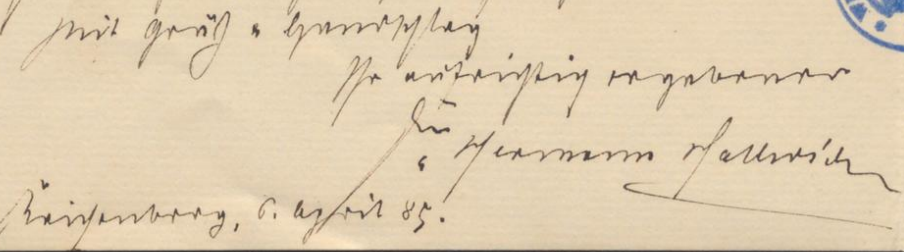 Mit Gruß u Handschlag
Ihr aufrichtig ergebener
Dr
Hermann Hallwich
Reichenberg, 6. April 85.